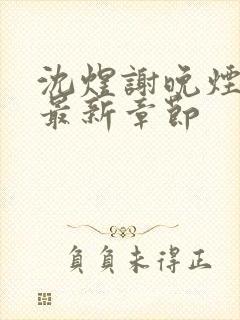 沈煌謝晚煙
最新章節
負負未得正